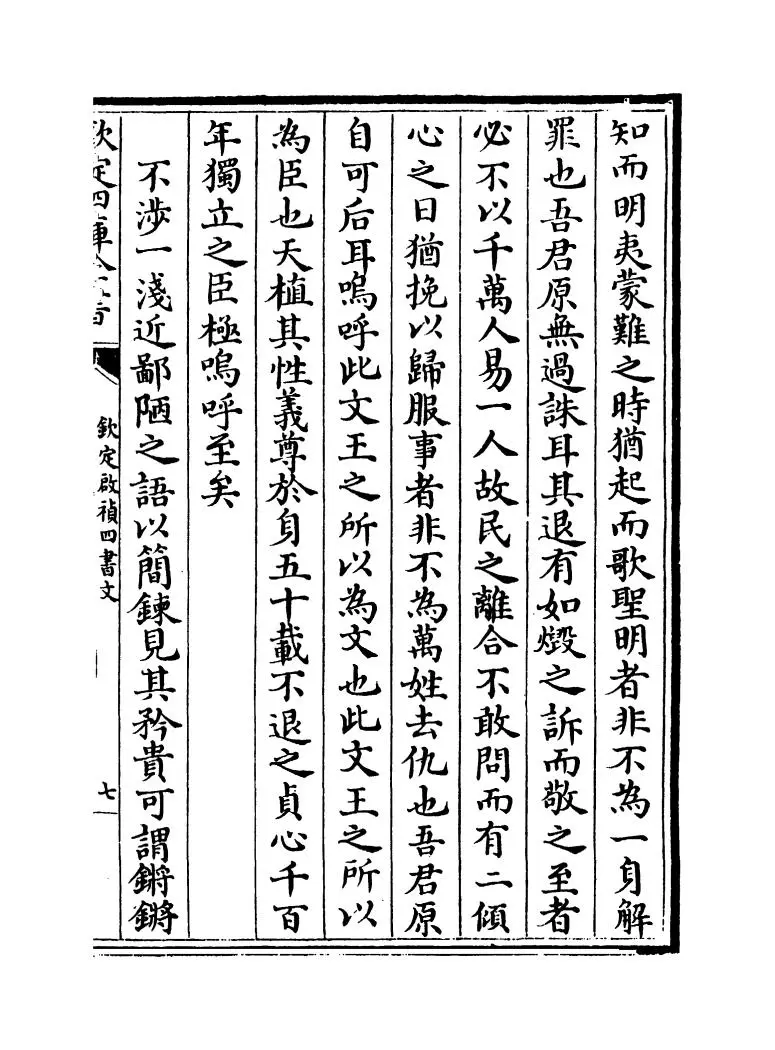 知而明夷蒙難之時猶起而歌聖明者非不為一身解
罪也吾君原無過誅耳其退有如燬之訴而敬之至者
必不以千萬人易一人故民之離合不敢問而有二傾
心之日猶挽以歸服事者非不為萬姓去仇也吾君原
自可后耳嗚呼此文王之所以為文也此文王之所以
為臣也天植其性義尊於身五十載不退之貞心千百
年獨立之臣極嗚呼至矣
不渉一淺近鄙陋之語以簡鍊見其矜貴可謂鏘鏘
欽定四庫全書
欽定啟禎四書文
七